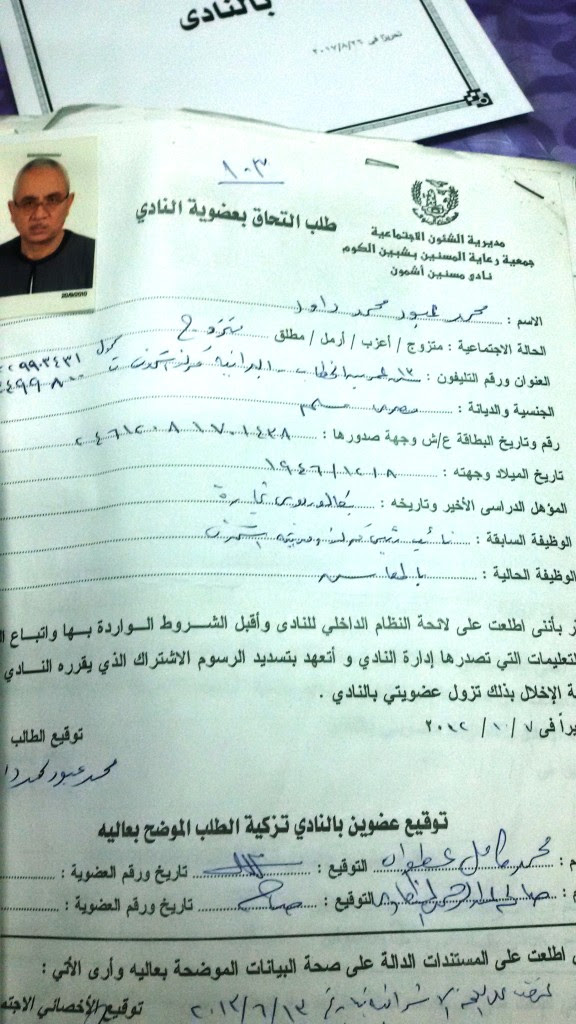 بالنادى
تحريرًا فى ٢٠١٧/٨/٢٦
١٠٣
مديرية الشئون الاجتماعية
جمعية رعاية المسنين بشبين الكوم
نادى مسنين أشمون
طلب التحاق بعضوية النادي
20/9/2010
الاسم : محمد عبود محمد داود
الحالة الاجتماعية : متزوج / أعزب / أرمل / مطلق متزوج
العنوان ورقم التليفون :
الجنسية والديانة : مصرى مسلم
رقم وتاريخ البطاقة ع/ش وجهة صدورها : ٢٤٦١٢٠٨١٧٠١٤٣٨
تاريخ الميلاد وجهته : ١٩٤٦/١٢/٨
المؤهل الدراسى الأخير وتاريخه : بكالوريوس تجارة
الوظيفة السابقة : نائب رئيس مركز ومدينة أشمون
الوظيفة الحالية : بالمعاش
ر بأننى اطلعت على لائحة النظام الداخلي للنادى وأقبل الشروط الواردة بها واتباع
لتعليمات التي تصدرها إدارة النادي و أتعهد بتسديد الرسوم الاشتراك الذي يقرره النادي
ة الإخلال بذلك تزول عضويتي بالنادي .
يراً فى ٧ / ١٠ / ٢٠١٢
توقيع الطالب
محمد عبود محمد
توقيع عضوين بالنادي تزكية الطلب الموضح بعاليه
م : محمد كامل التوقيع : تاريخ ورقم العضوية :
التوقيع : صالح تاريخ ورقم العضوية :
اطلعت على المستندات الدالة على صحة البيانات الموضحة بعاليه وأرى الأتي :
٢٠١٣/٦/١٣ توقيع الأخصائي